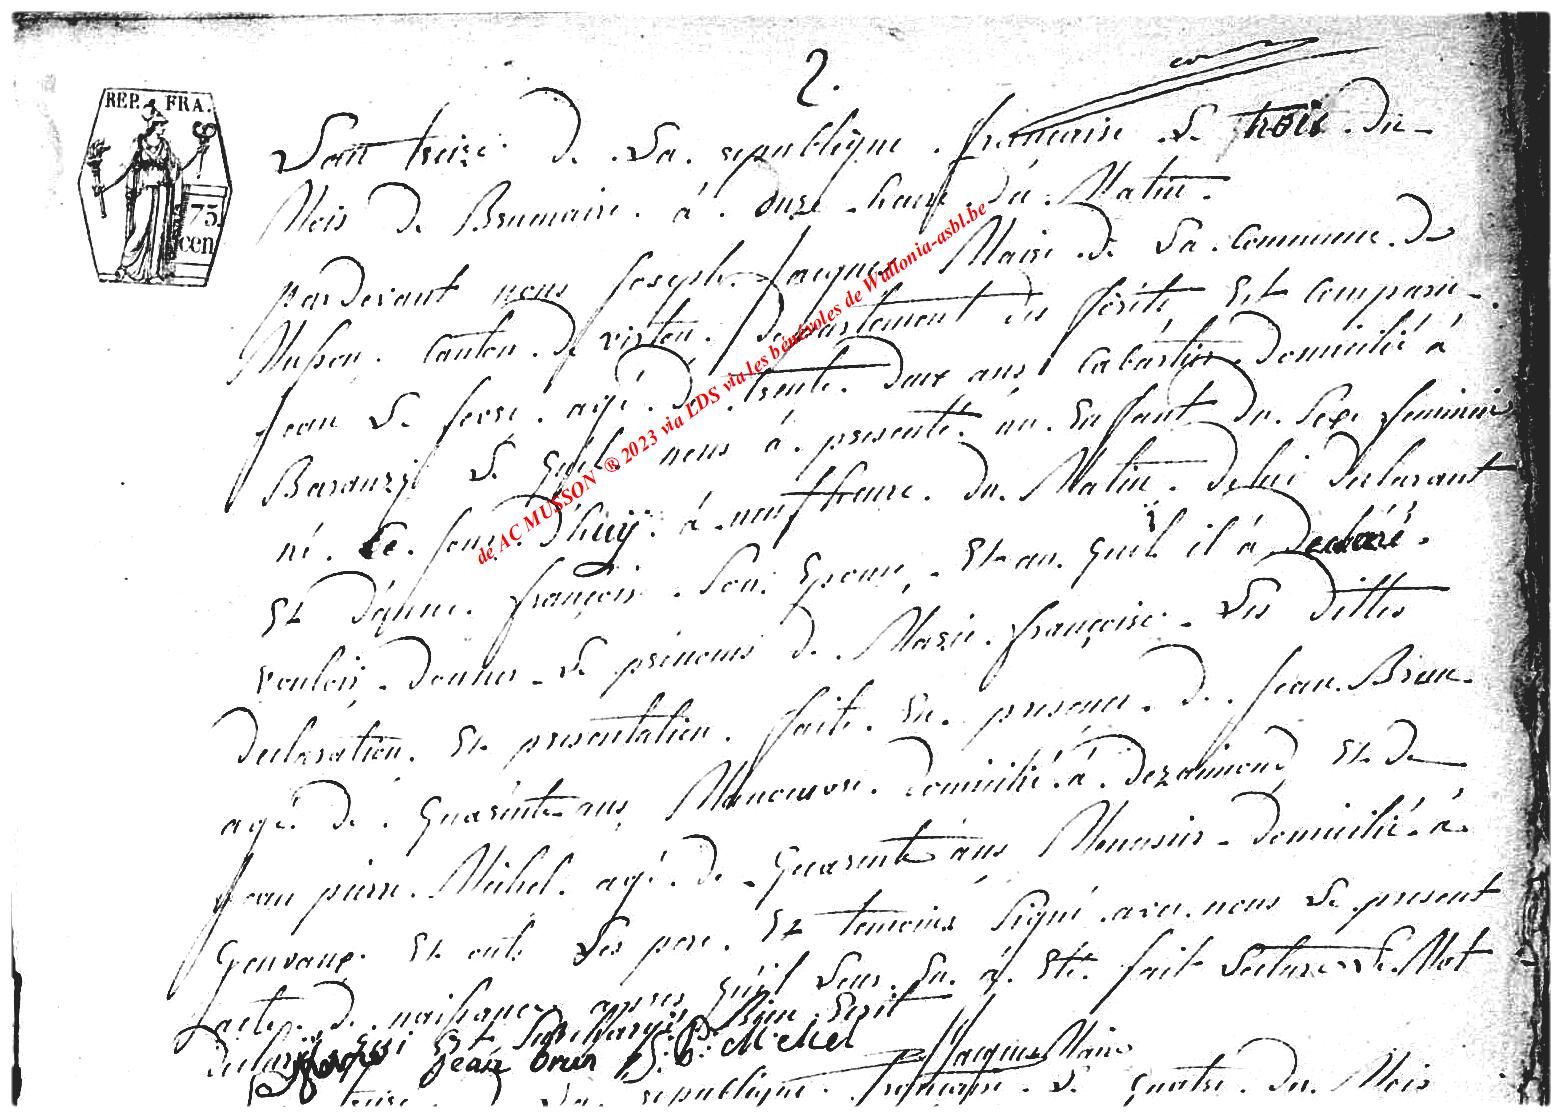 2.
REP. FRA.
75
cen
Lan treize de La republique française Le trois du
Mois de Brumaire à onze heure du Matin
pardevant nous Joseph Jacques Maire de La Commune de
Musson Canton de virton departement des forêts Est comparu
Jean Le fevre agé de trente deux ans Cabartier domicilié à
Baranzy Le quel nous à presenté un Enffant du Sexe feminin
né Le jour d'huÿ à neuf heure du Matin de lui declarant
Et d'anne françois Son Epouse, Et au quel il à declaré
vouloir donner Le prenoms de Marie françoise Les dittes
declaration Et presentation faite En presence de Jean Brun
agé de quarente ans Manouvre domicilié à dezaimond Et de
Jean pierre Michel agé de quarente ans Menusier domicilié à
Gouvaux Et onts Les pere Et temoins Signé avec nous Le present
acte de naissance apres qu'il Leur En à Eté fait Lecture Le Mot
declaré Et Surchargé Bien Ecrit
jean brun J: P: Michel Jacques Maire
treize de La republique française Le quatre du Mois
de AC MUSSON ® 2023 via LDS via les bénévoles de Wallonia-asbl.be